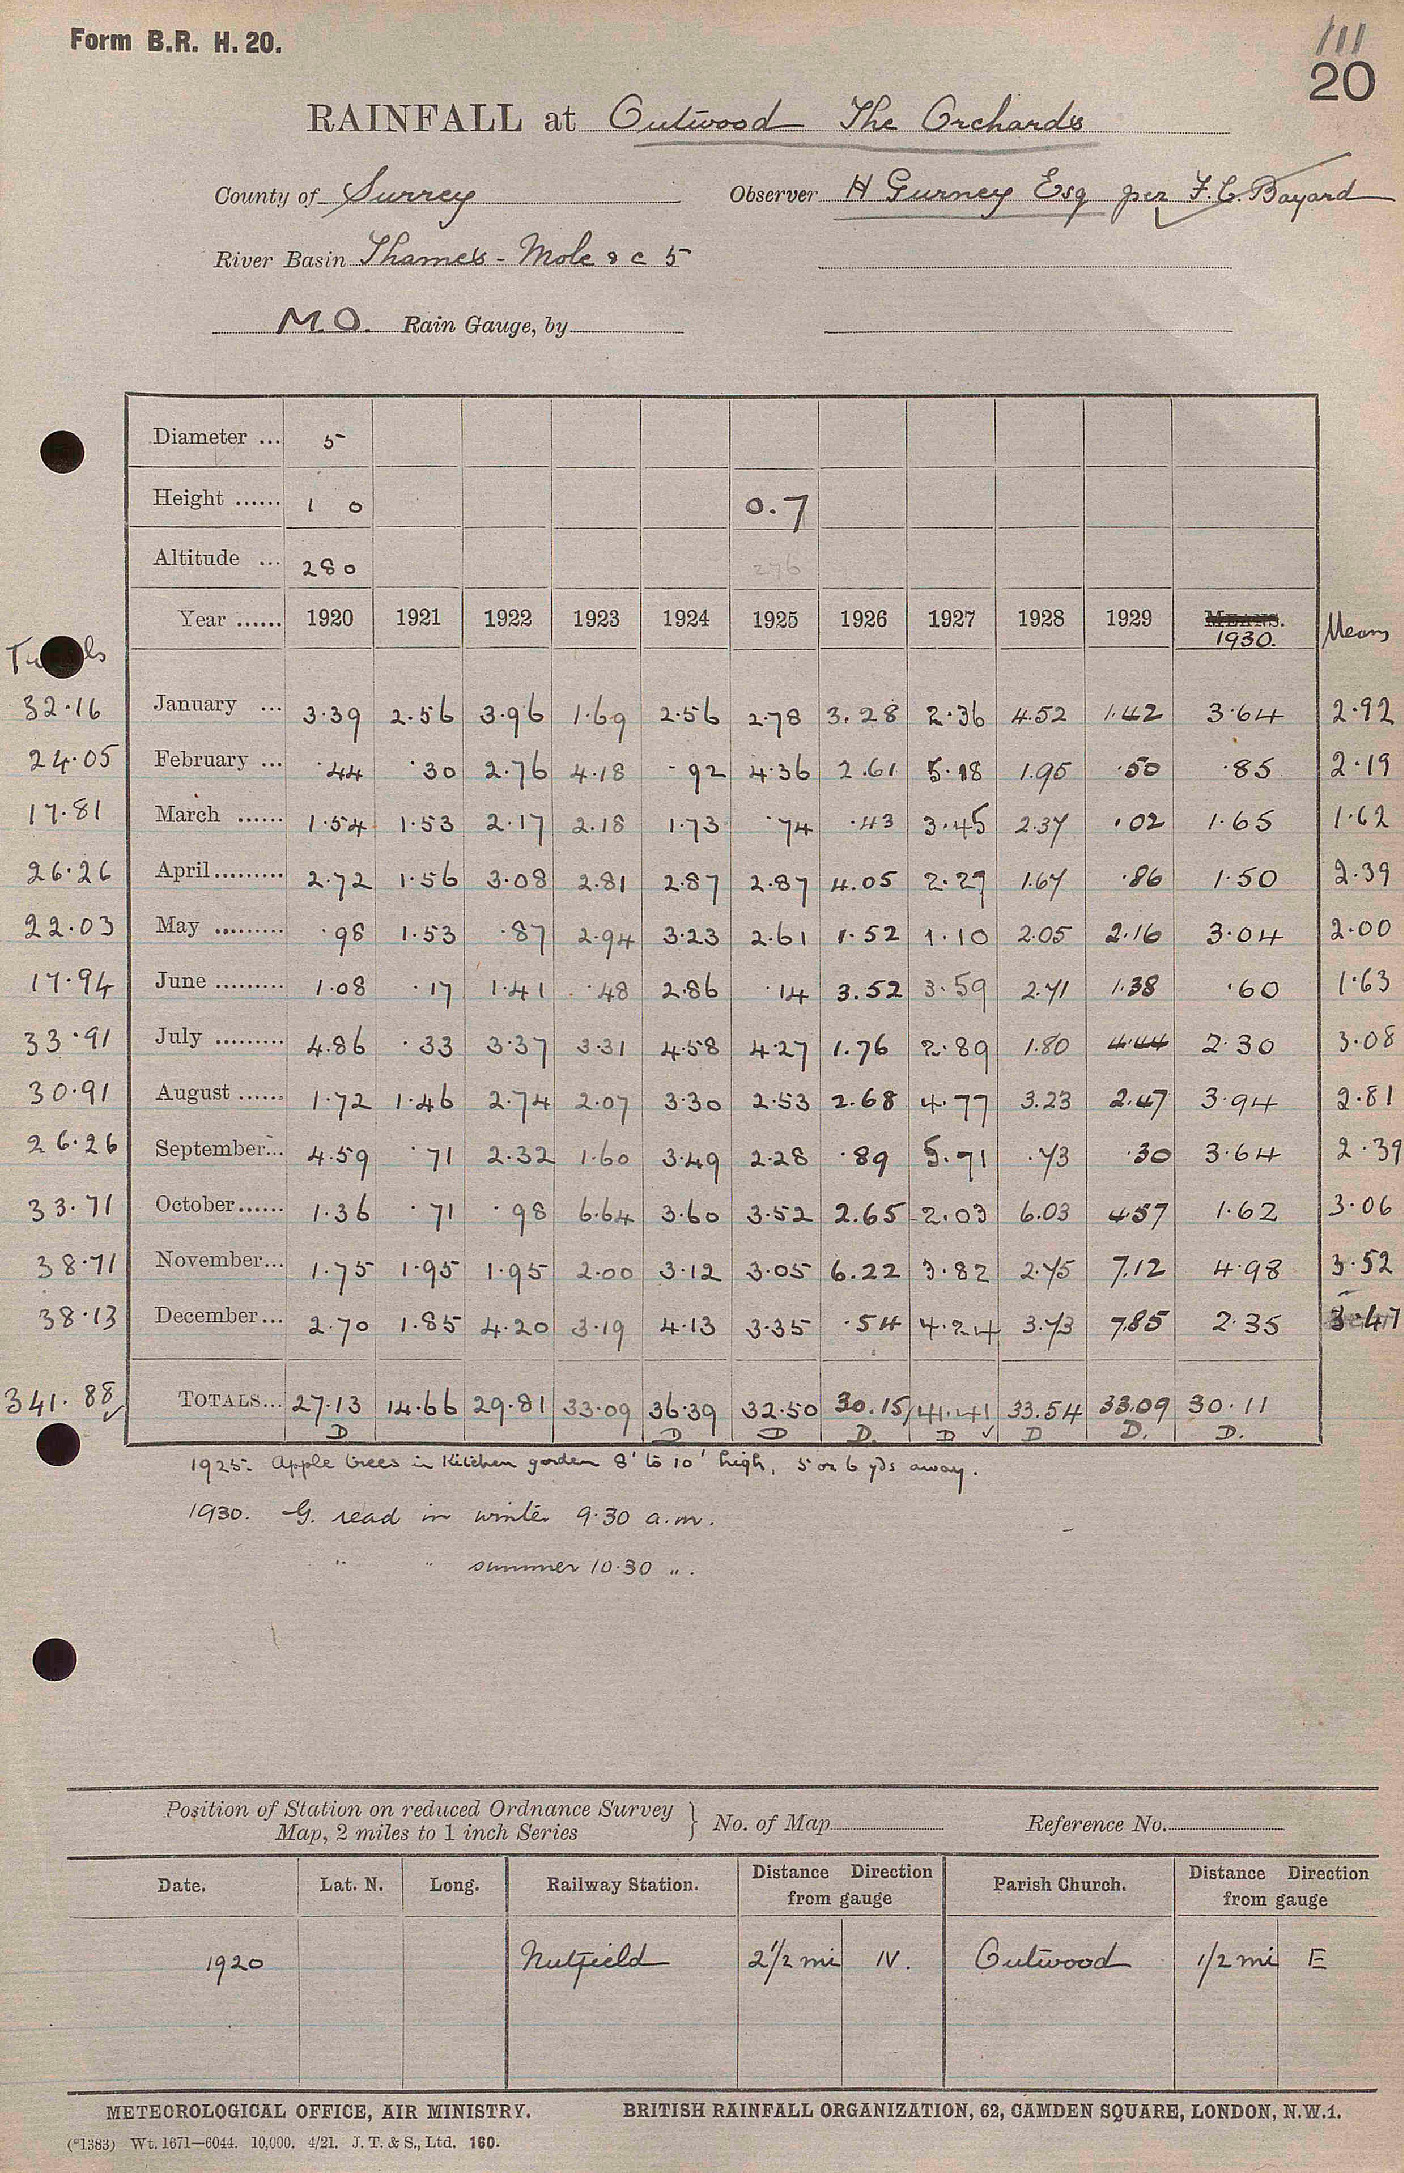 Form B.R. H. 20.
111
20
RAINFALL at Outwood The Orchards
County of Surrey Observer H Gurney Esq per F.C. Bayard
River Basin Thames - Mole &c 5
M.O. Rain Gauge, by
Diameter ... 5
Height ...... 1 0 0.7
Altitude ... 280 276
Year ...... 1920 1921 1922 1923 1924 1925 1926 1927 1928 1929 MEANS. 1930. Means
32.16 January ... 3.39 2.56 3.96 1.69 2.56 2.78 3.28 2.36 4.52 1.42 3.64 2.92
24.05 February ... .44 .30 2.76 4.18 .92 4.36 2.61 5.18 1.95 .50 .85 2.19
17.81 March ...... 1.54 1.53 2.17 2.18 1.73 .74 .43 3.45 2.37 .02 1.65 1.62
26.26 April ......... 2.72 1.56 3.08 2.81 2.87 2.87 4.05 2.27 1.67 .86 1.50 2.39
22.03 May ......... .98 1.53 .87 2.94 3.23 2.61 1.52 1.10 2.05 2.16 3.04 2.00
17.94 June ......... 1.08 .17 1.41 .48 2.86 .14 3.52 3.59 2.71 1.38 .60 1.63
33.91 July ......... 4.86 .33 3.37 3.31 4.58 4.27 1.76 2.89 1.80 4.44 2.30 3.08
30.91 August ...... 1.72 1.46 2.74 2.07 3.30 2.53 2.68 4.77 3.23 2.47 3.94 2.81
26.26 September... 4.59 .71 2.32 1.60 3.49 2.28 .89 5.71 .73 .30 3.64 2.39
33.71 October...... 1.36 .71 .98 6.64 3.60 3.52 2.65 2.03 6.03 4.57 1.62 3.06
38.71 November... 1.75 1.95 1.95 2.00 3.12 3.05 6.22 3.82 2.75 7.12 4.98 3.52
38.13 December... 2.70 1.85 4.20 3.19 4.13 3.35 .54 4.24 3.73 7.85 2.35 3.47
341.88 TOTALS... 27.13 14.66 29.81 33.09 36.39 32.50 30.15 41.41 33.54 33.09 30.11
D D D D. D D D. D.
1925. Apple trees in Kitchen garden 8' to 10' high, 5 or 6 yds away.
1930. G. read in winter 9.30 a.m.
" " summer 10.30 ".
Position of Station on reduced Ordnance Survey
Map, 2 miles to 1 inch Series } No. of Map Reference No.
Date. Lat. N. Long. Railway Station. Distance Direction from gauge Parish Church. Distance Direction from gauge
1920 Nutfield 2 1/2 mi N. Outwood 1/2 mi E
METEOROLOGICAL OFFICE, AIR MINISTRY. BRITISH RAINFALL ORGANIZATION, 62, CAMDEN SQUARE, LONDON, N.W.1.
(*1383) Wt. 1671—6044. 10,000. 4/21. J. T. & S., Ltd. 160.